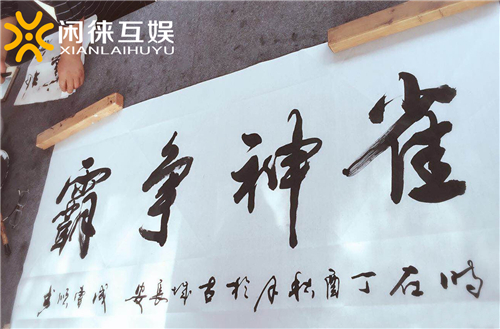 闲徕互娱
XIANLAIHUYU
雀神争霸
时在丁酉秋月於古城長安